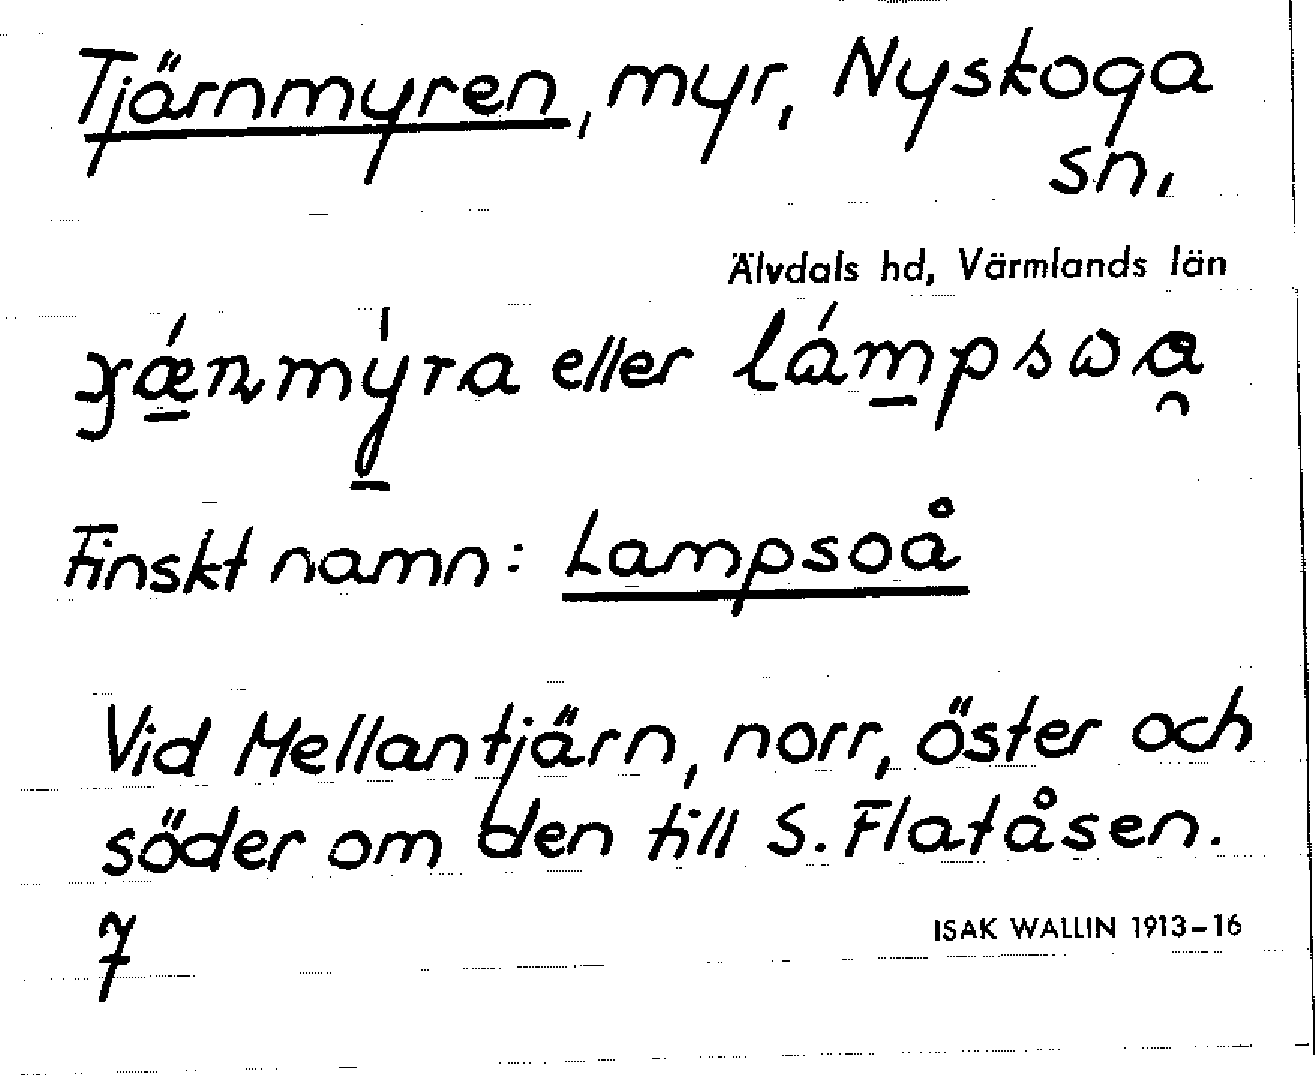 Tjärnmyren, myr, Nyskoga
sn,
Älvdals hd, Värmlands län
eller
Finskt namn: Lampsoå
Vid Mellantjärn, norr, öster och
söder om den till S. Flatåsen.
7
ISAK WALLIN 1913-16